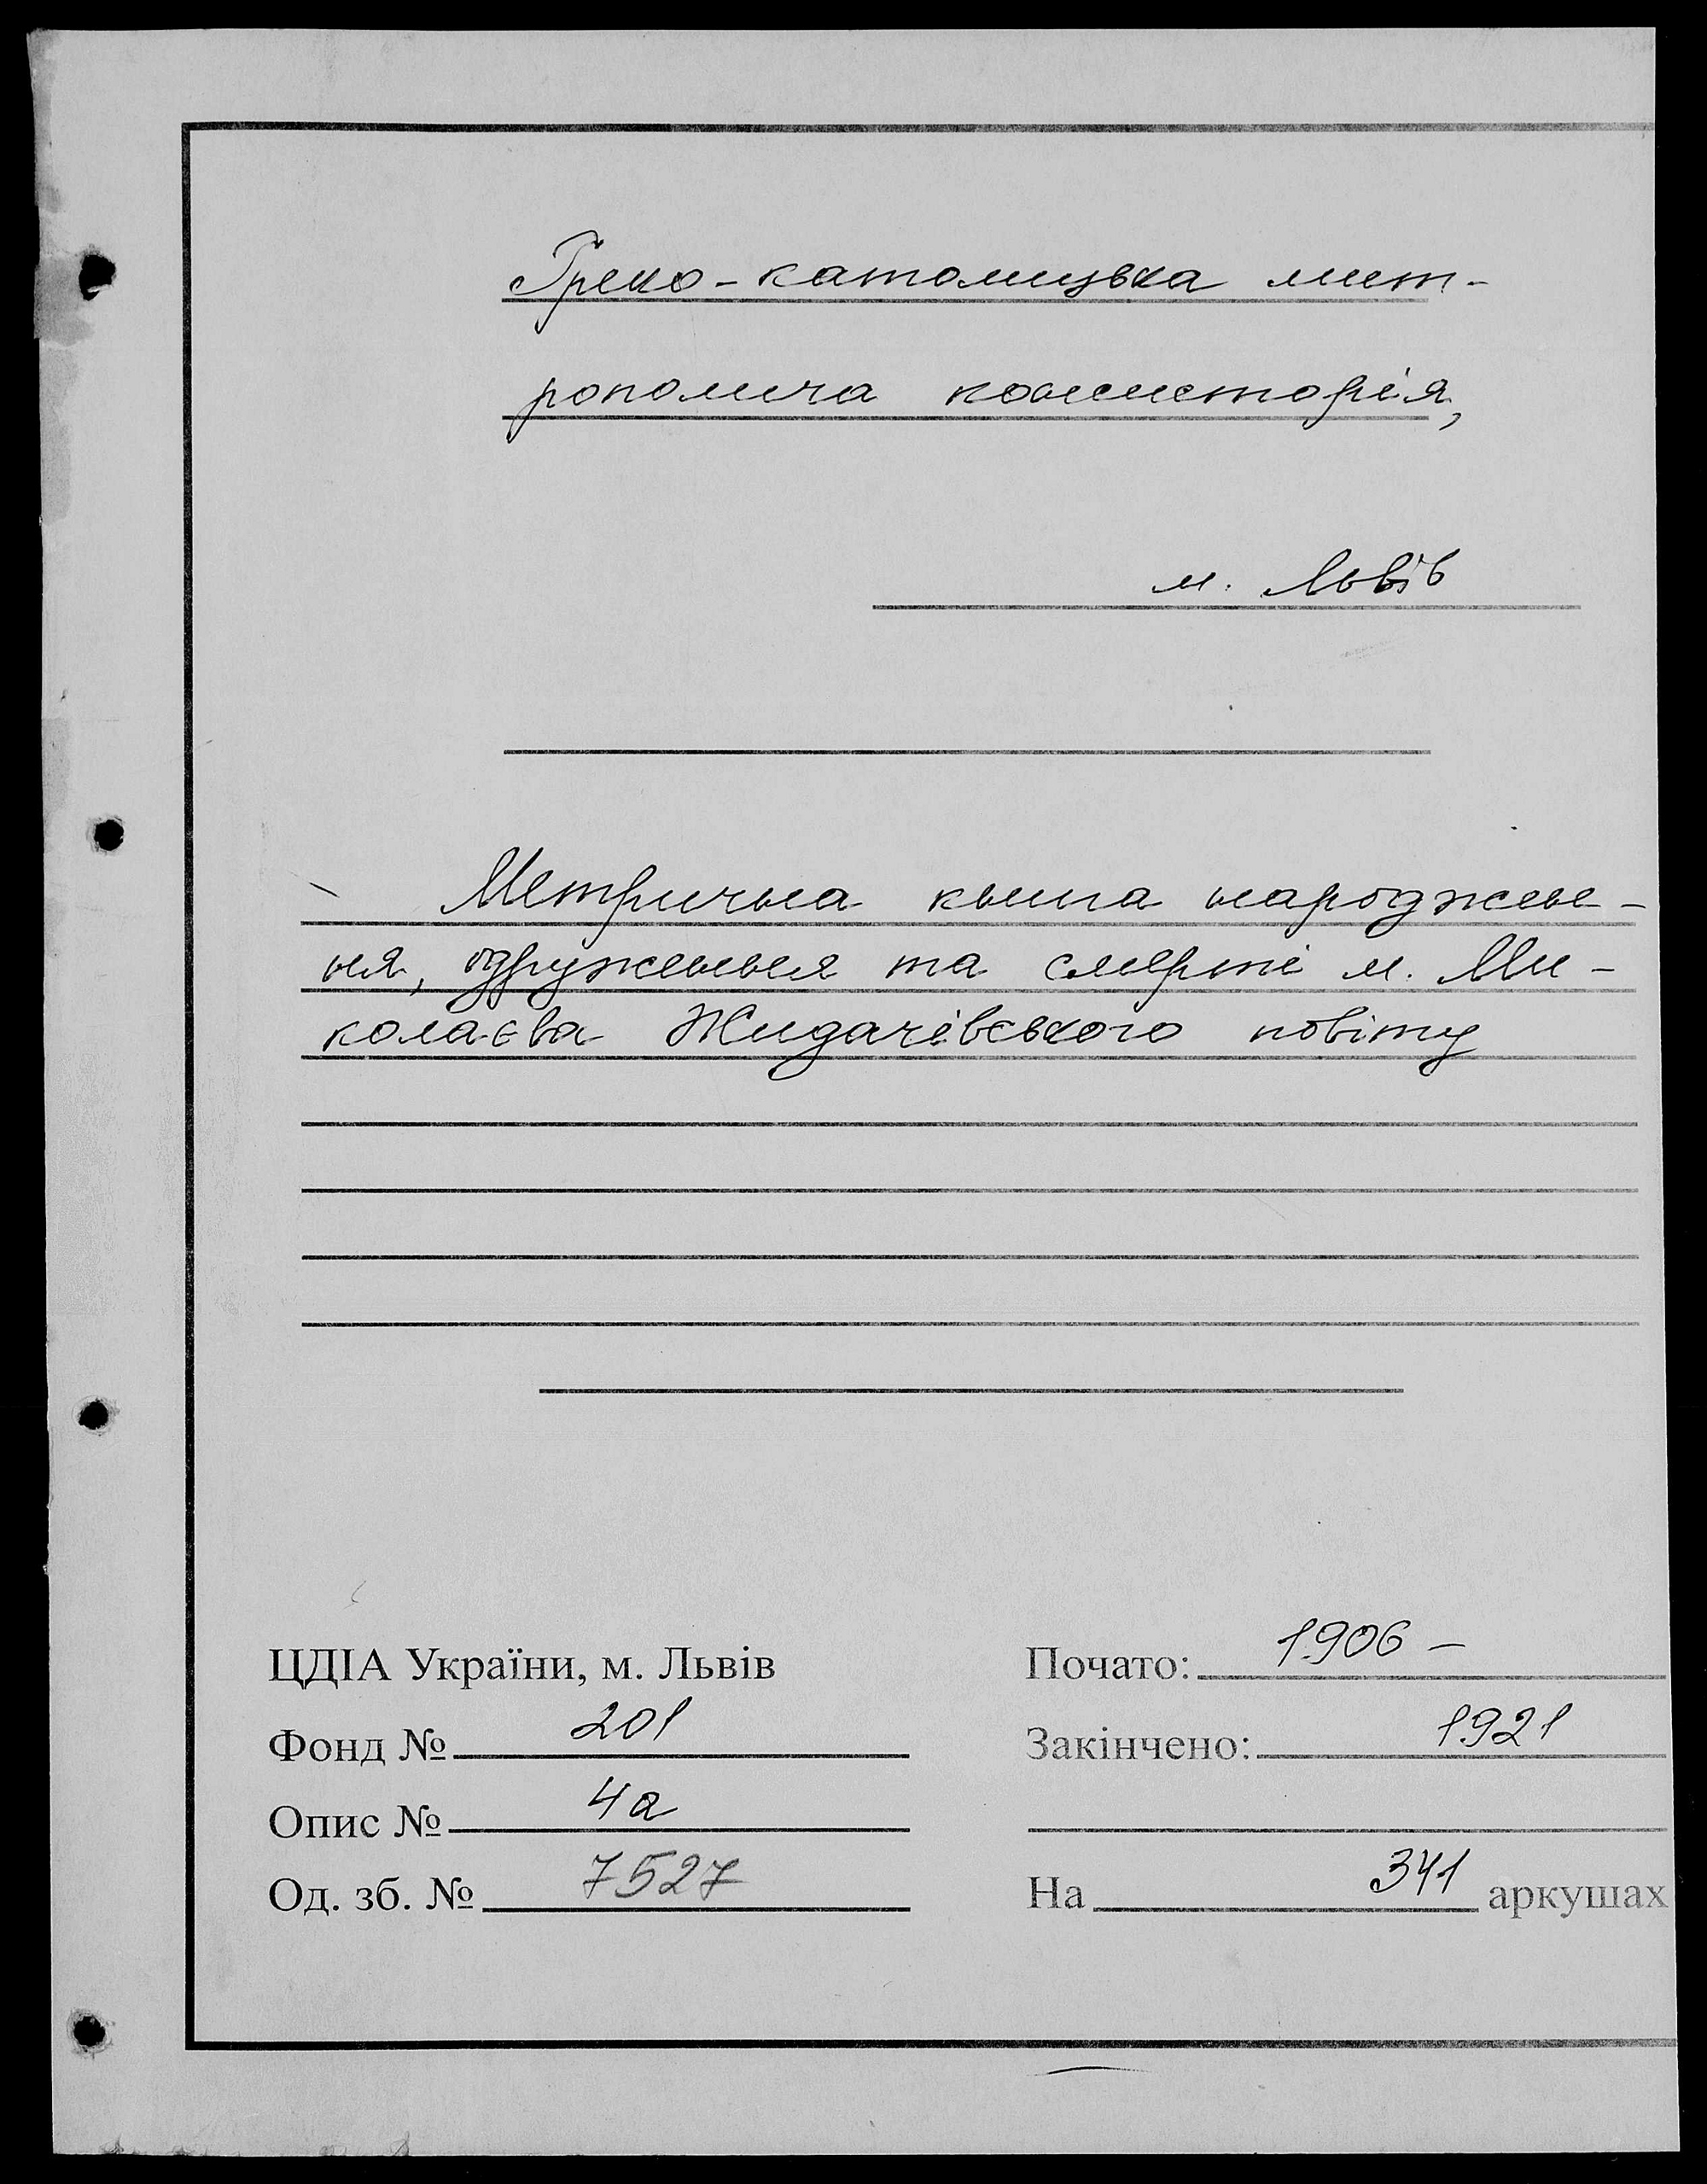 Греко-католицька мит-
рополича консисторія,
м. Львів
Метрична книга народжен-
ня, одруження та смерті м. Ми-
колаєва Жидачівського повіту
ЦДІА України, м. Львів
Почато: 1906 –
Фонд № 201
Закінчено: 1921
Опис № 4а
Од. зб. № 7527
На 341 аркушах